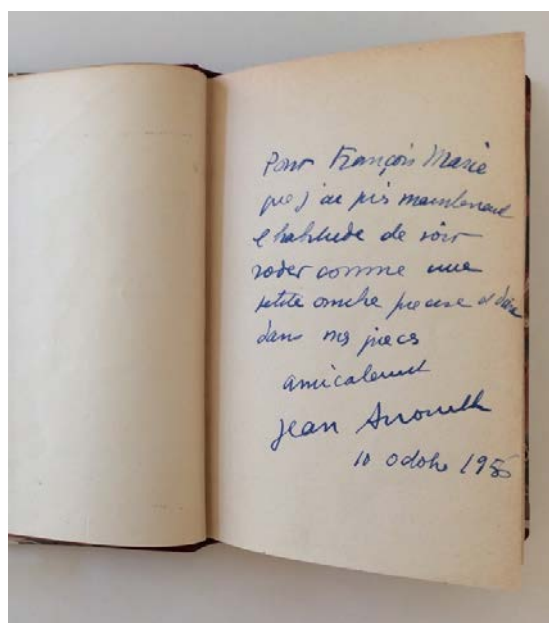 Pour François Marie
que j'ai pris maintenant
l'habitude de voir
roder comme une
petite ombre precise et
dans mes pieces
amicalement
Jean Anouilh
10 octobre 195